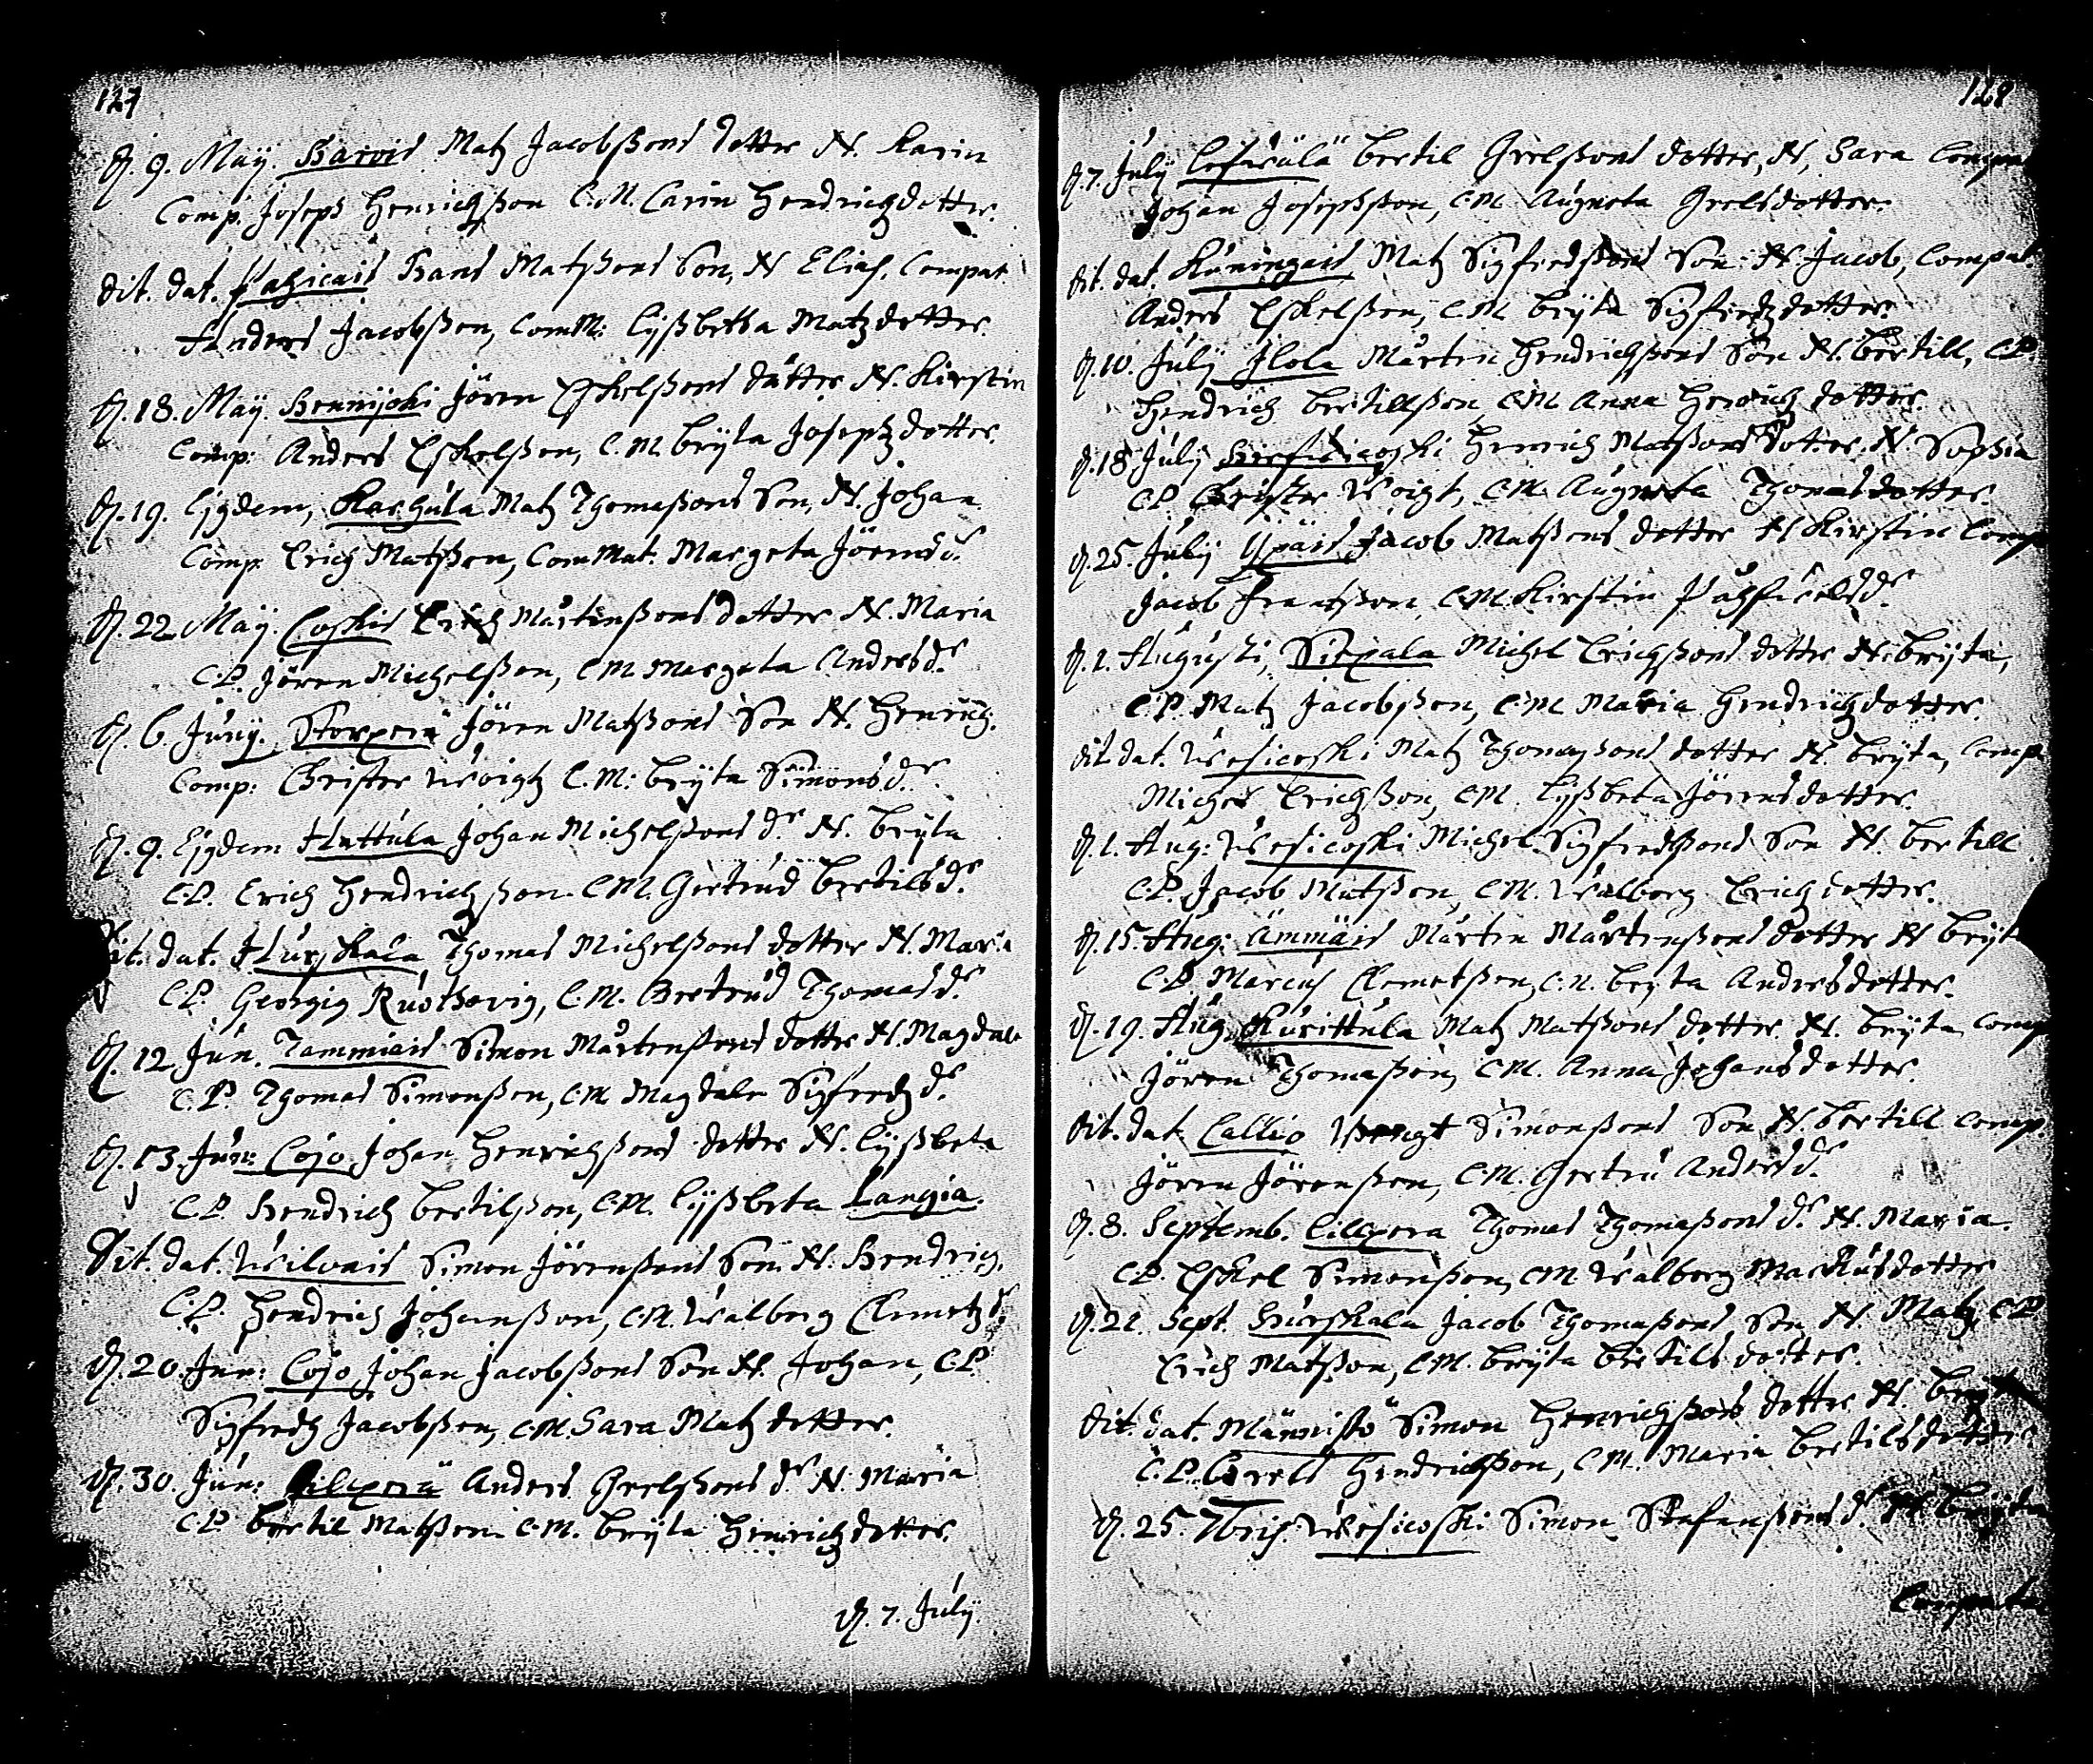 127
D. 9. Maÿ. Harvis Matz Jacobßons dotter N. Karin
Comp. Joseph Henrichßon C.M. Carin Hendrichzdotter.
dit. dat. Pahicais Hans Matßons Son, N Elias. Compat
Anders Jacobßon, ComM: Lyßbetta Matzdotter
D. 18. Maÿ. Hennijoki Jören Eskelßons dotter N. Kirstin
Comp: Anders Eskelßon, C.M. Brÿta Josephzdotter.
D. 19. Ejsdem, Karhula Matz Thomaßons Son, N. Johan
Comp. Erich Matßon, ComMat. Margeta Jörensdr
D. 22 Maÿ. Coskis Erich Mårtenßons dotter N. Maria
C.P. Jören Michelßon, CM Margeta Andersdr
D. 6. Junÿ. Storperä Jören Matßons Son N. Henrich.
Comp: Christer Woigt C.M: Brÿta Simonsdr.
D. 9. Ejsdem Huttula Johan Michelßons dr N. Brÿta
C.P. Erich Hendrichßon. CM. Giertrud Bertilsdr
dit. dat. Hurskala Thomas Michelßons dotter N. Maria
C.P. Georgig Ruothovig, C.M. Giertrud Thomasdr
D. 12 Jun. Tammiais Simon Mårtenßons dotter N. Magdale
C.P. Thomas Simonßon, CM Magdale Sigfredzdr
D. 13. Jun: Cojo Johan Henrichßons dotter N. Lyßbeta
C.P. Hendrich Bertilßon, C.M. Lyßbeta Langia.
Dit. dat. Wilvais Simon Jörenßons Son N. Hendrich.
C.P. Hendrich Johanßon, C.M. Walborg Clemetzdr
D. 20. Jun: Cojo Johan Jacobßons Son N. Johan, C.P.
Sigfredh Jacobßon, C.M. Sara Matzdotter.
D. 30. Jun: Lillperä Anders Grelßons dr N. Maria
C.P. Bertil Matßon C.M. Brÿta Hinrichzdotter.
D. 7. Julÿ.
128
D. 7. Julÿ Bertil Grelßons dotter, N, Sara Compat
Johan Josephßon, C.M. Augneta Grelsdotter.
dit. dat. Kuningais Matz Sigfredßons Son N. Jacob, Compat.
Anders Eskelßon, C.M Brÿta Sigfredzdotter.
D. 10. Julÿ Ilola Mårten Hendrichßons Son N. Bertill, C.P.
Hendrich Bertillßon C.M Anna Henrichzdotter.
D. 18. Julÿ Henrich Matßons dotter. N. Sophia
C.P. Christer Woigt, C.M. Augneta Thomasdotter
D. 25. Julÿ Ypäis Jacob Matßons dotter N Kirstin Comp
Jacob Frantßon, C.M. Kirstin
D. 1. Augusti, Sirpala Michel Erichßons dotter N. Brÿta,
C.P. Matz Jacobßon, C.M Maria Hendrichzdotter.
dit dat. Wesicoski Matz Thomaßons dotter N. Brÿta, Comp
Michel Erichßon, CM. Lyßbeta Jörensdotter.
D. 1. Aug: Wesicoski Michel Sigfredßons Son N. Bertill
C.P. Jacob Matßon, C.M. Walborg Erichzdotter.
D. 15. Aug: Ämmäis Mårten Mårtenßons dotter N Brÿta
C.P. Marcus Clemetßon, C.M. Brÿta Andersdotter.
D. 19. Aug. Kurittula Matz Matßons dotter N. Brÿta, Comp
Jören Thomaßon, C.M. Anna Johansdotter.
dit. dat. Callio Bengt Simonßons Son N. Bertill Comp.
Jören Jörenßon, C.M. Giertru Andersdr
D. 8. Septemb. Lillpera Thomas Thomaßons dr N. Maria.
C.P. Eskel Simonßon, CM Walborg Markusdotter
D. 21. Sept. Hurskala Jacob Thomaßons Son N. Matz, C.P
Erich Matßon, C.M. Brÿta Bertils dotter.
dit. dat. Männistö Simon Henrichßons dotter N. Brÿta
C.P. Grels Hendrichßon, C.M. Maria Bertilsdotter
D. 25. 7bris. Wesicoski Simon Stafanßons dr N. Brÿta
Compater